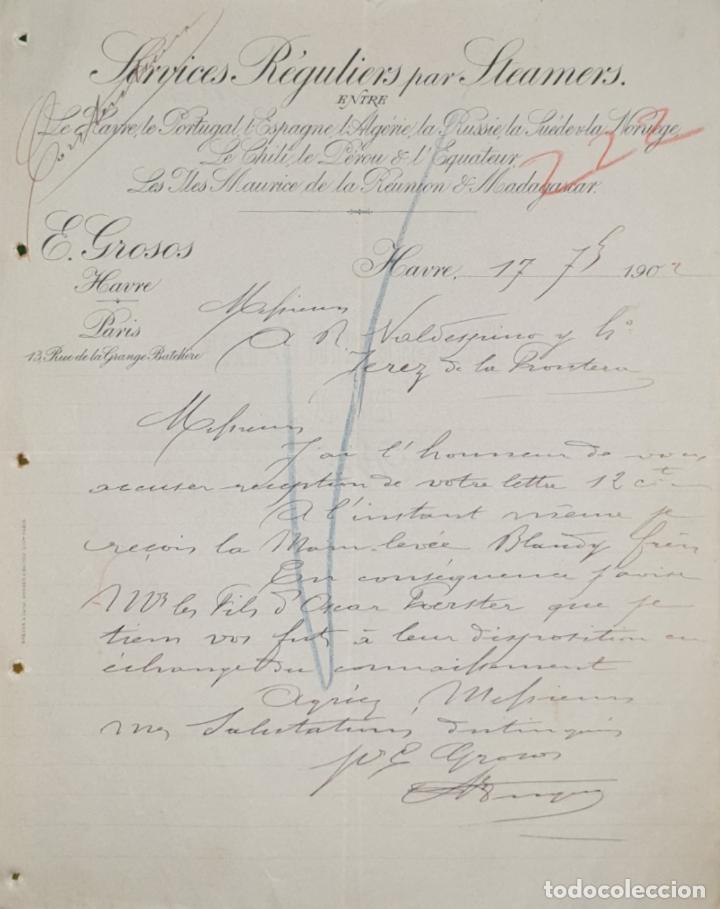 Services Réguliers par Steamers.
ENTRE
Le Havre, le Portugal, l'Espagne, l'Algérie, la Russie, la Suède & la Norvège,
Le Chili, le Pérou & l'Equateur,
Les Iles Maurice de la Réunion & Madagascar.
222
E. Grosos
Havre
Paris
13, Rue de la Grange-Batelière
Havre, 17 7bre 1902
Messieurs
A R Valdespino y Ho
Jerez de la Frontera
Messieurs
J'ai l'honneur de vous
accuser réception de votre lettre 12 ct
A l'instant même je
reçois la Main levée Blandy frères
En conséquence j'avise
MMrs les Fils d'Oscar Foerster que je
tiens vos futs à leur disposition en
échange du connaissement
Agréez, Messieurs
mes Salutations distinguées
pr E Grosos
todocoleccion.net